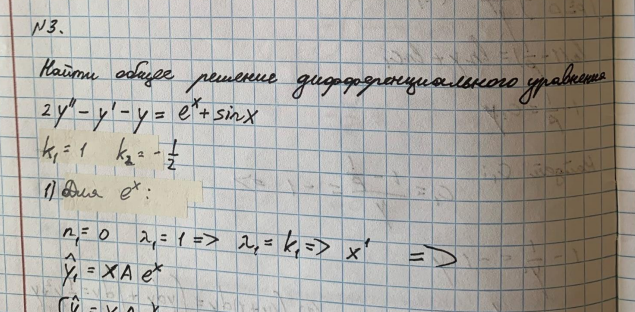 №3.
Найти общее решение дифференциального уравнения
2y'' - y' - y = eˣ + sinx
k₁ = 1 k₂ = -1/2
1) Для eˣ:
n₁ = 0 λ₁ = 1 => λ₁ = k₁ => x¹ =>
ŷ₁ = x A eˣ